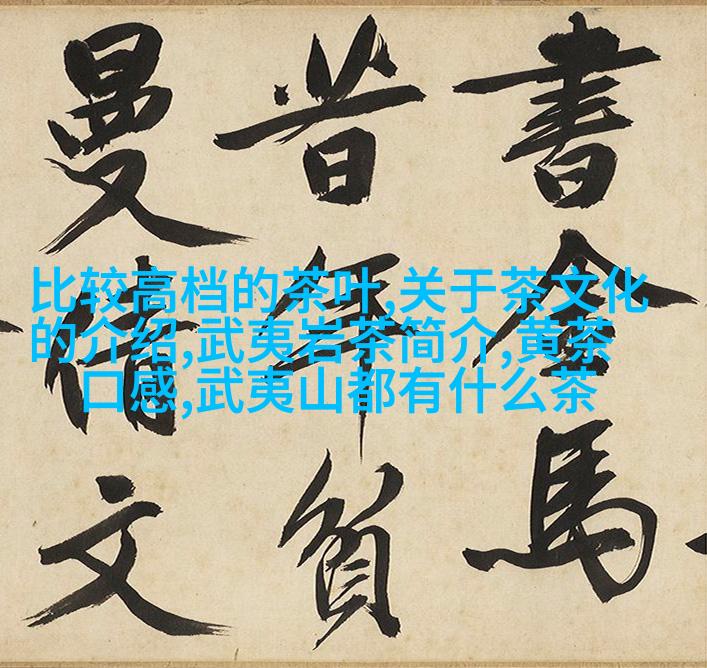 比较高档的茶叶,关于茶文化
的介绍,武夷岩茶简介,黄茶
口感,武夷山都有什么茶
書金馬
昔年負
曼倩文